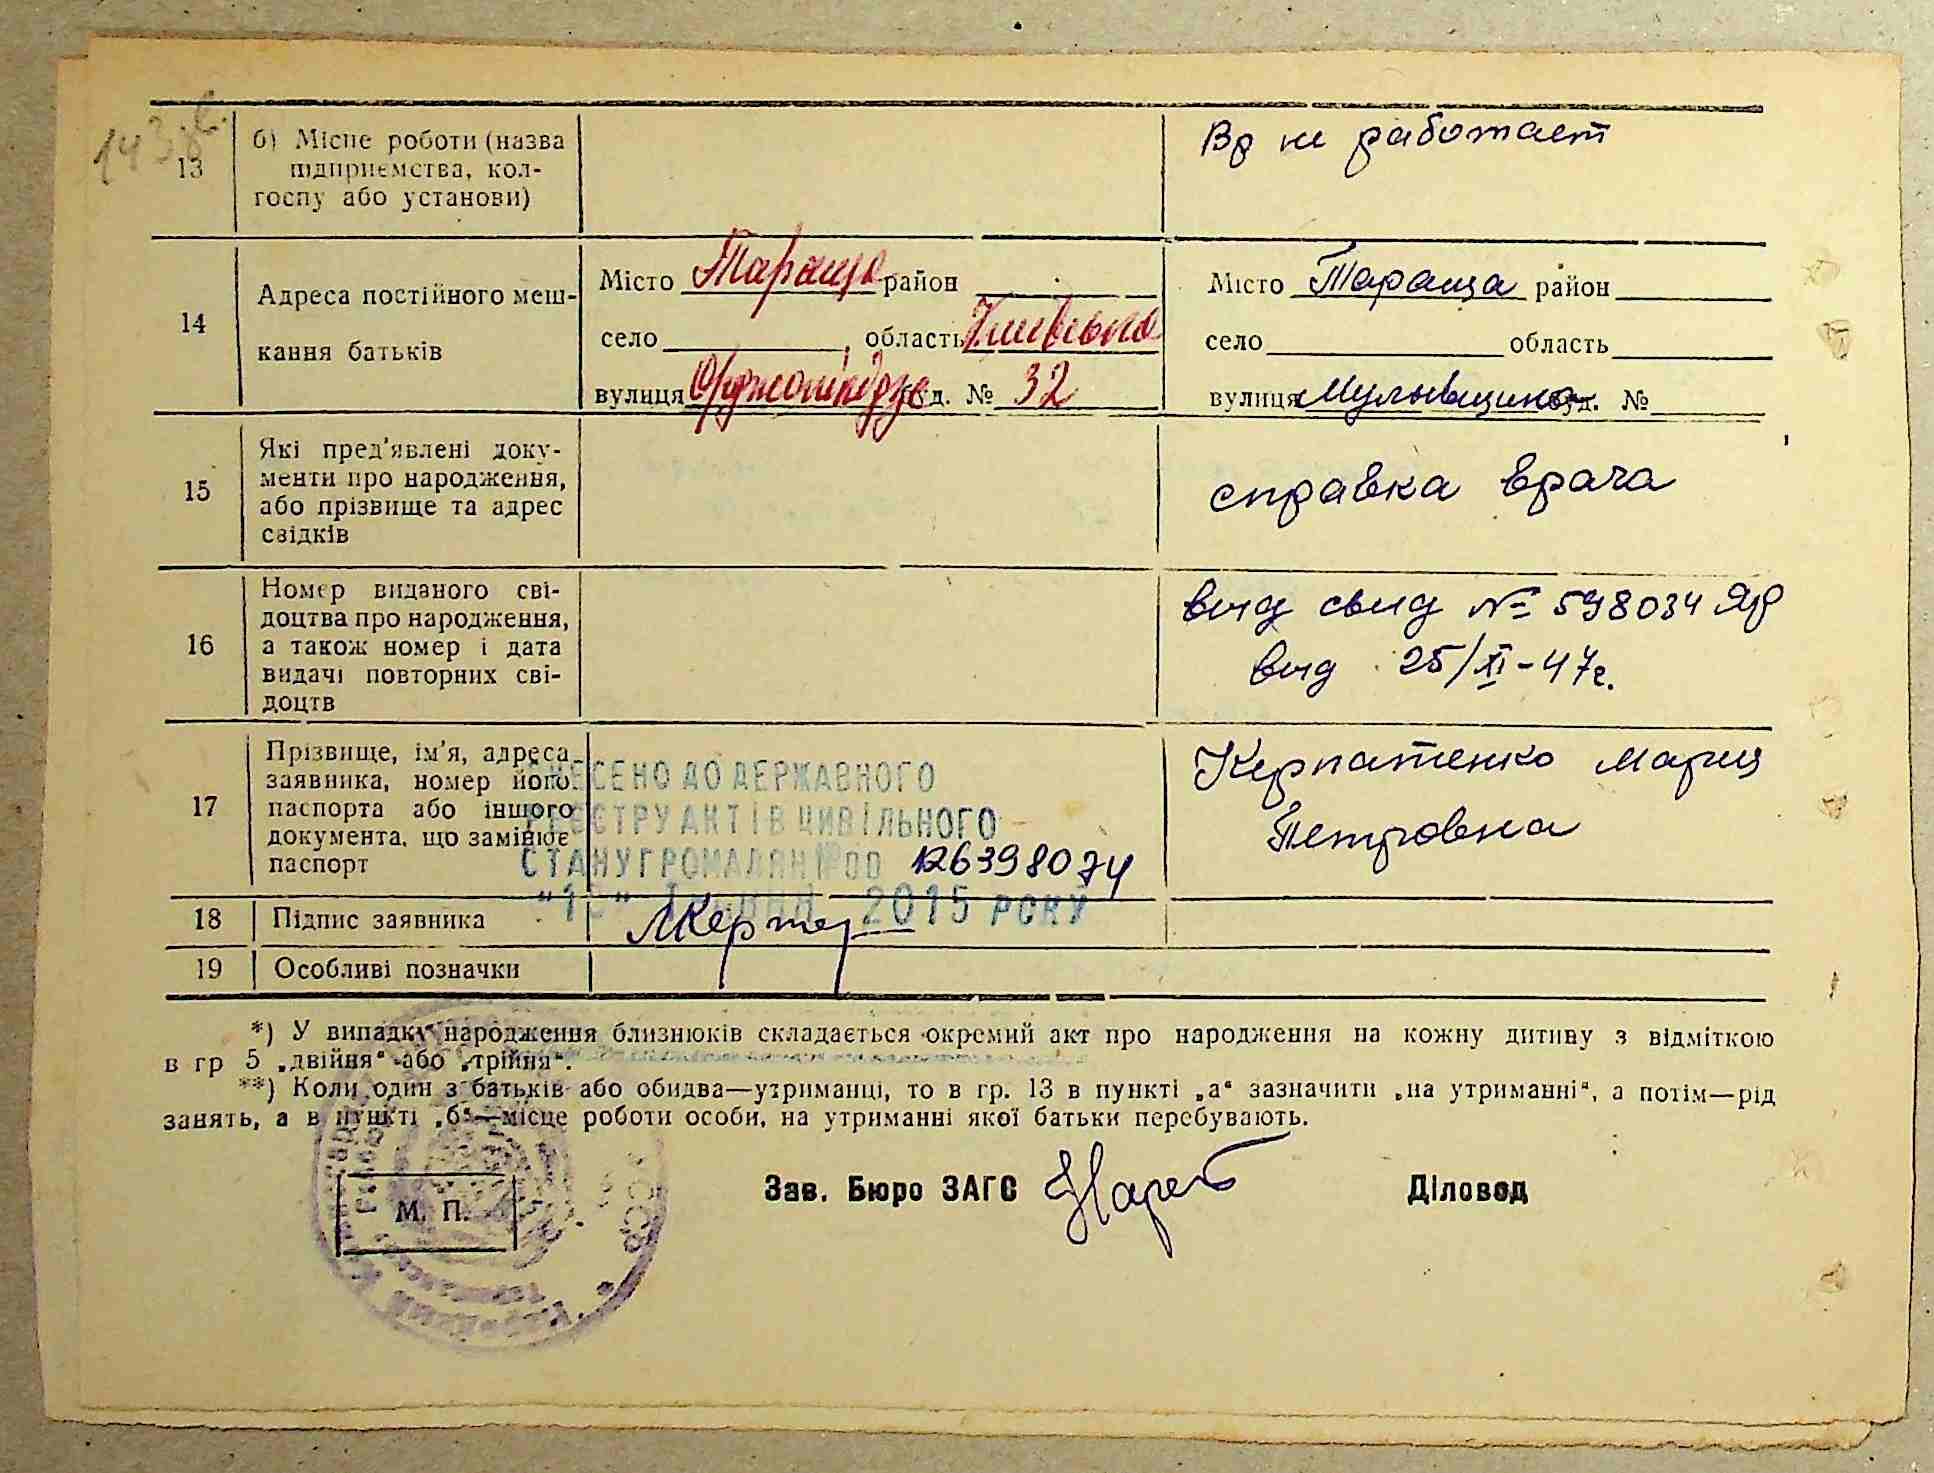 143
13
б) Місце роботи (назва
підприємства, кол-
госпу або установи)
Вр не работает
14
Адреса постійного меш-
кання батьків
Місто Тараща район
село , область Київська
вулиця Орджонікідзе буд. № 32
Місто Тараща район
село область
вулиця буд. №
15
Які пред'явлені доку-
менти про народження,
або прізвище та адрес
свідків
справка врача
16
Номер виданого сві-
доцтва про народження,
а також номер і дата
видачі повторних сві-
доцтв
выд свид № 598034 ЯР
выд 25/XI-47г.
17
Прізвище, ім'я, адреса
заявника, номер його
паспорта або іншого
документа, що замінює
паспорт
ВНЕСЕНО ДО ДЕРЖАВНОГО
РЕЄСТРУ АКТІВ ЦИВІЛЬНОГО
СТАНУ ГРОМАДЯН №00 126398074
2015 РОКУ
Керпатенко Мария
Петровна
18
Підпис заявника
19
Особливі позначки
*) У випадку народження близнюків складається окремий акт про народження на кожну дитину з відміткою
в гр 5 „двійня" або „трійня".
**) Коли один з батьків або обидва—утриманці, то в гр. 13 в пункті „а" зазначити „на утриманні", а потім—рід
занять, а в пункті „б"—місце роботи особи, на утриманні якої батьки перебувають.
М. П.
Зав. Бюро ЗАГС
Діловод